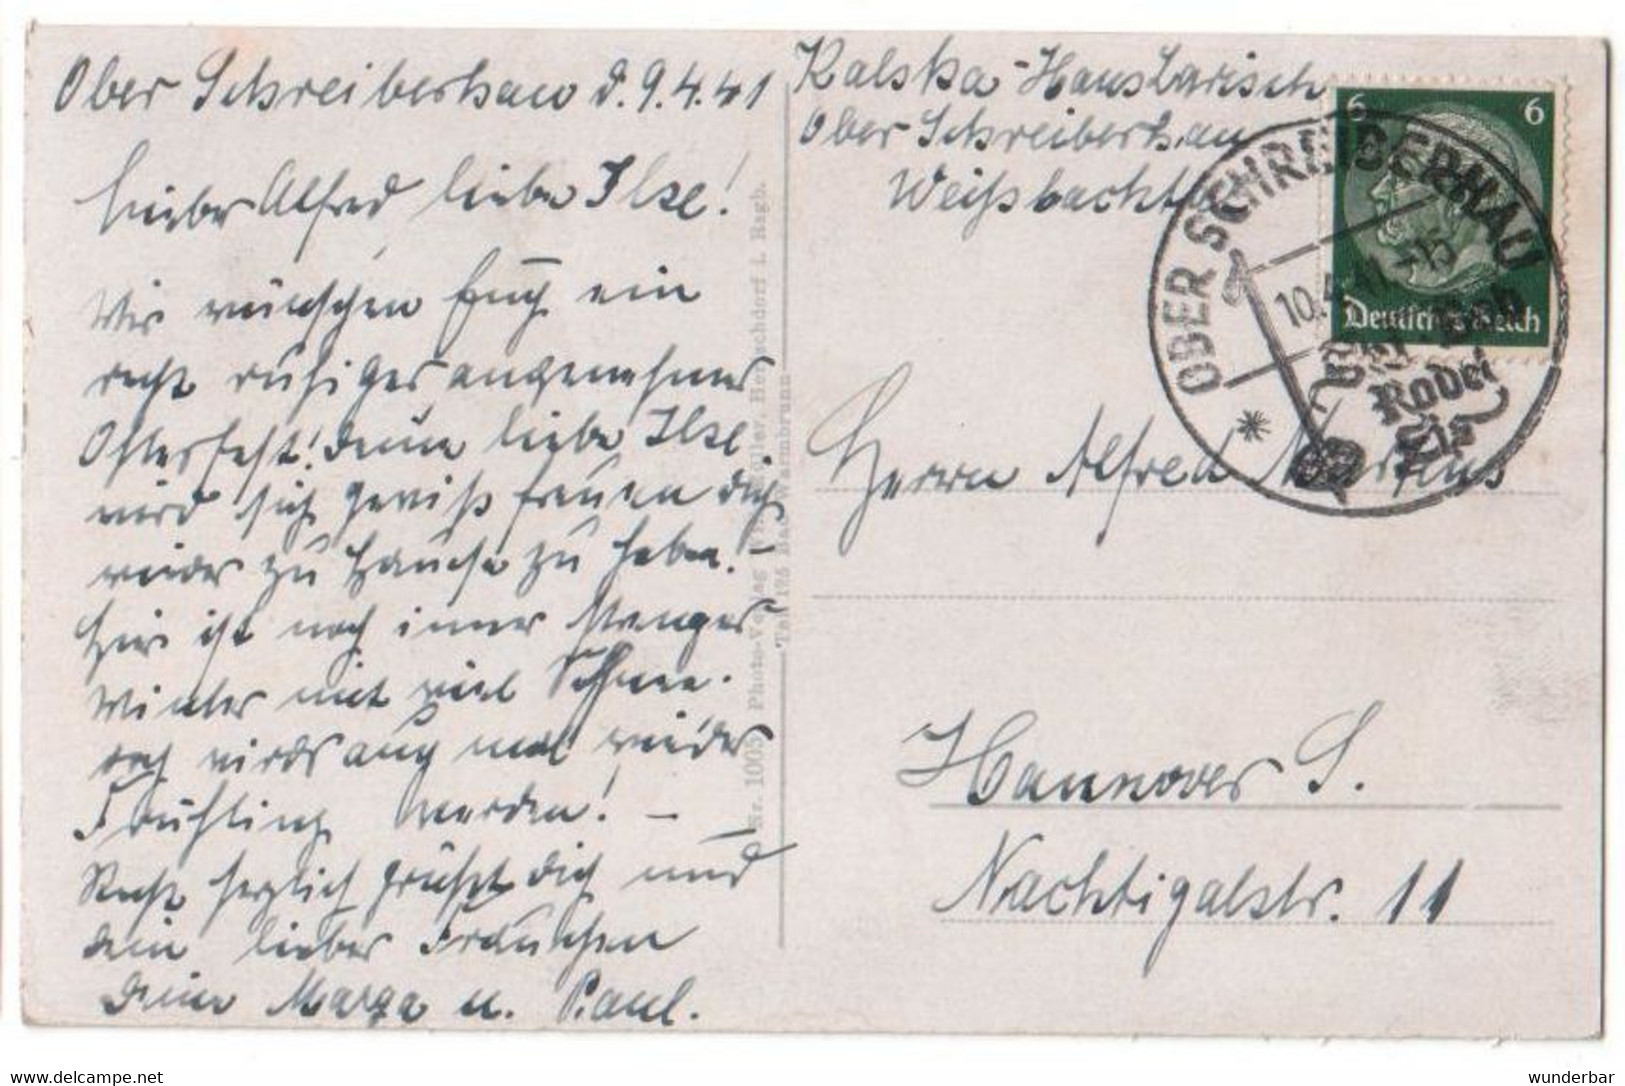 Ober Schreiberhau d. 9.4.41
Lieber Alfred liebe Ilse!
Wir wünschen Euch ein
recht ruhiges angenehmes
Osterfest! denn liebe Ilse
wird sich gewiß freuen dich
wieder zu Hause zu haben. –
Hier ist noch immer strenger
Winter mit viel Schnee.
doch wirds auch mal wieder
Frühling werden! –
Recht herzlich grüßt dich und
dein liebes Frauchen
deine Marga u. Paul.
Nr. 1005 Photo-Verlag
Hans Larisch
Ober Schreiberhau
6 6
Deutsches Reich
OBER SCHREIBERHAU
10.4.41.-15
Rodel
Herrn Alfred Mertens
Hannover S.
Nachtigalstr. 11
www.delcampe.net
wunderbar